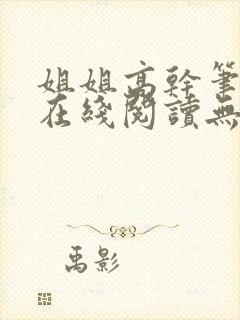 姐姐高幹筆
在綫閱讀無
禹影